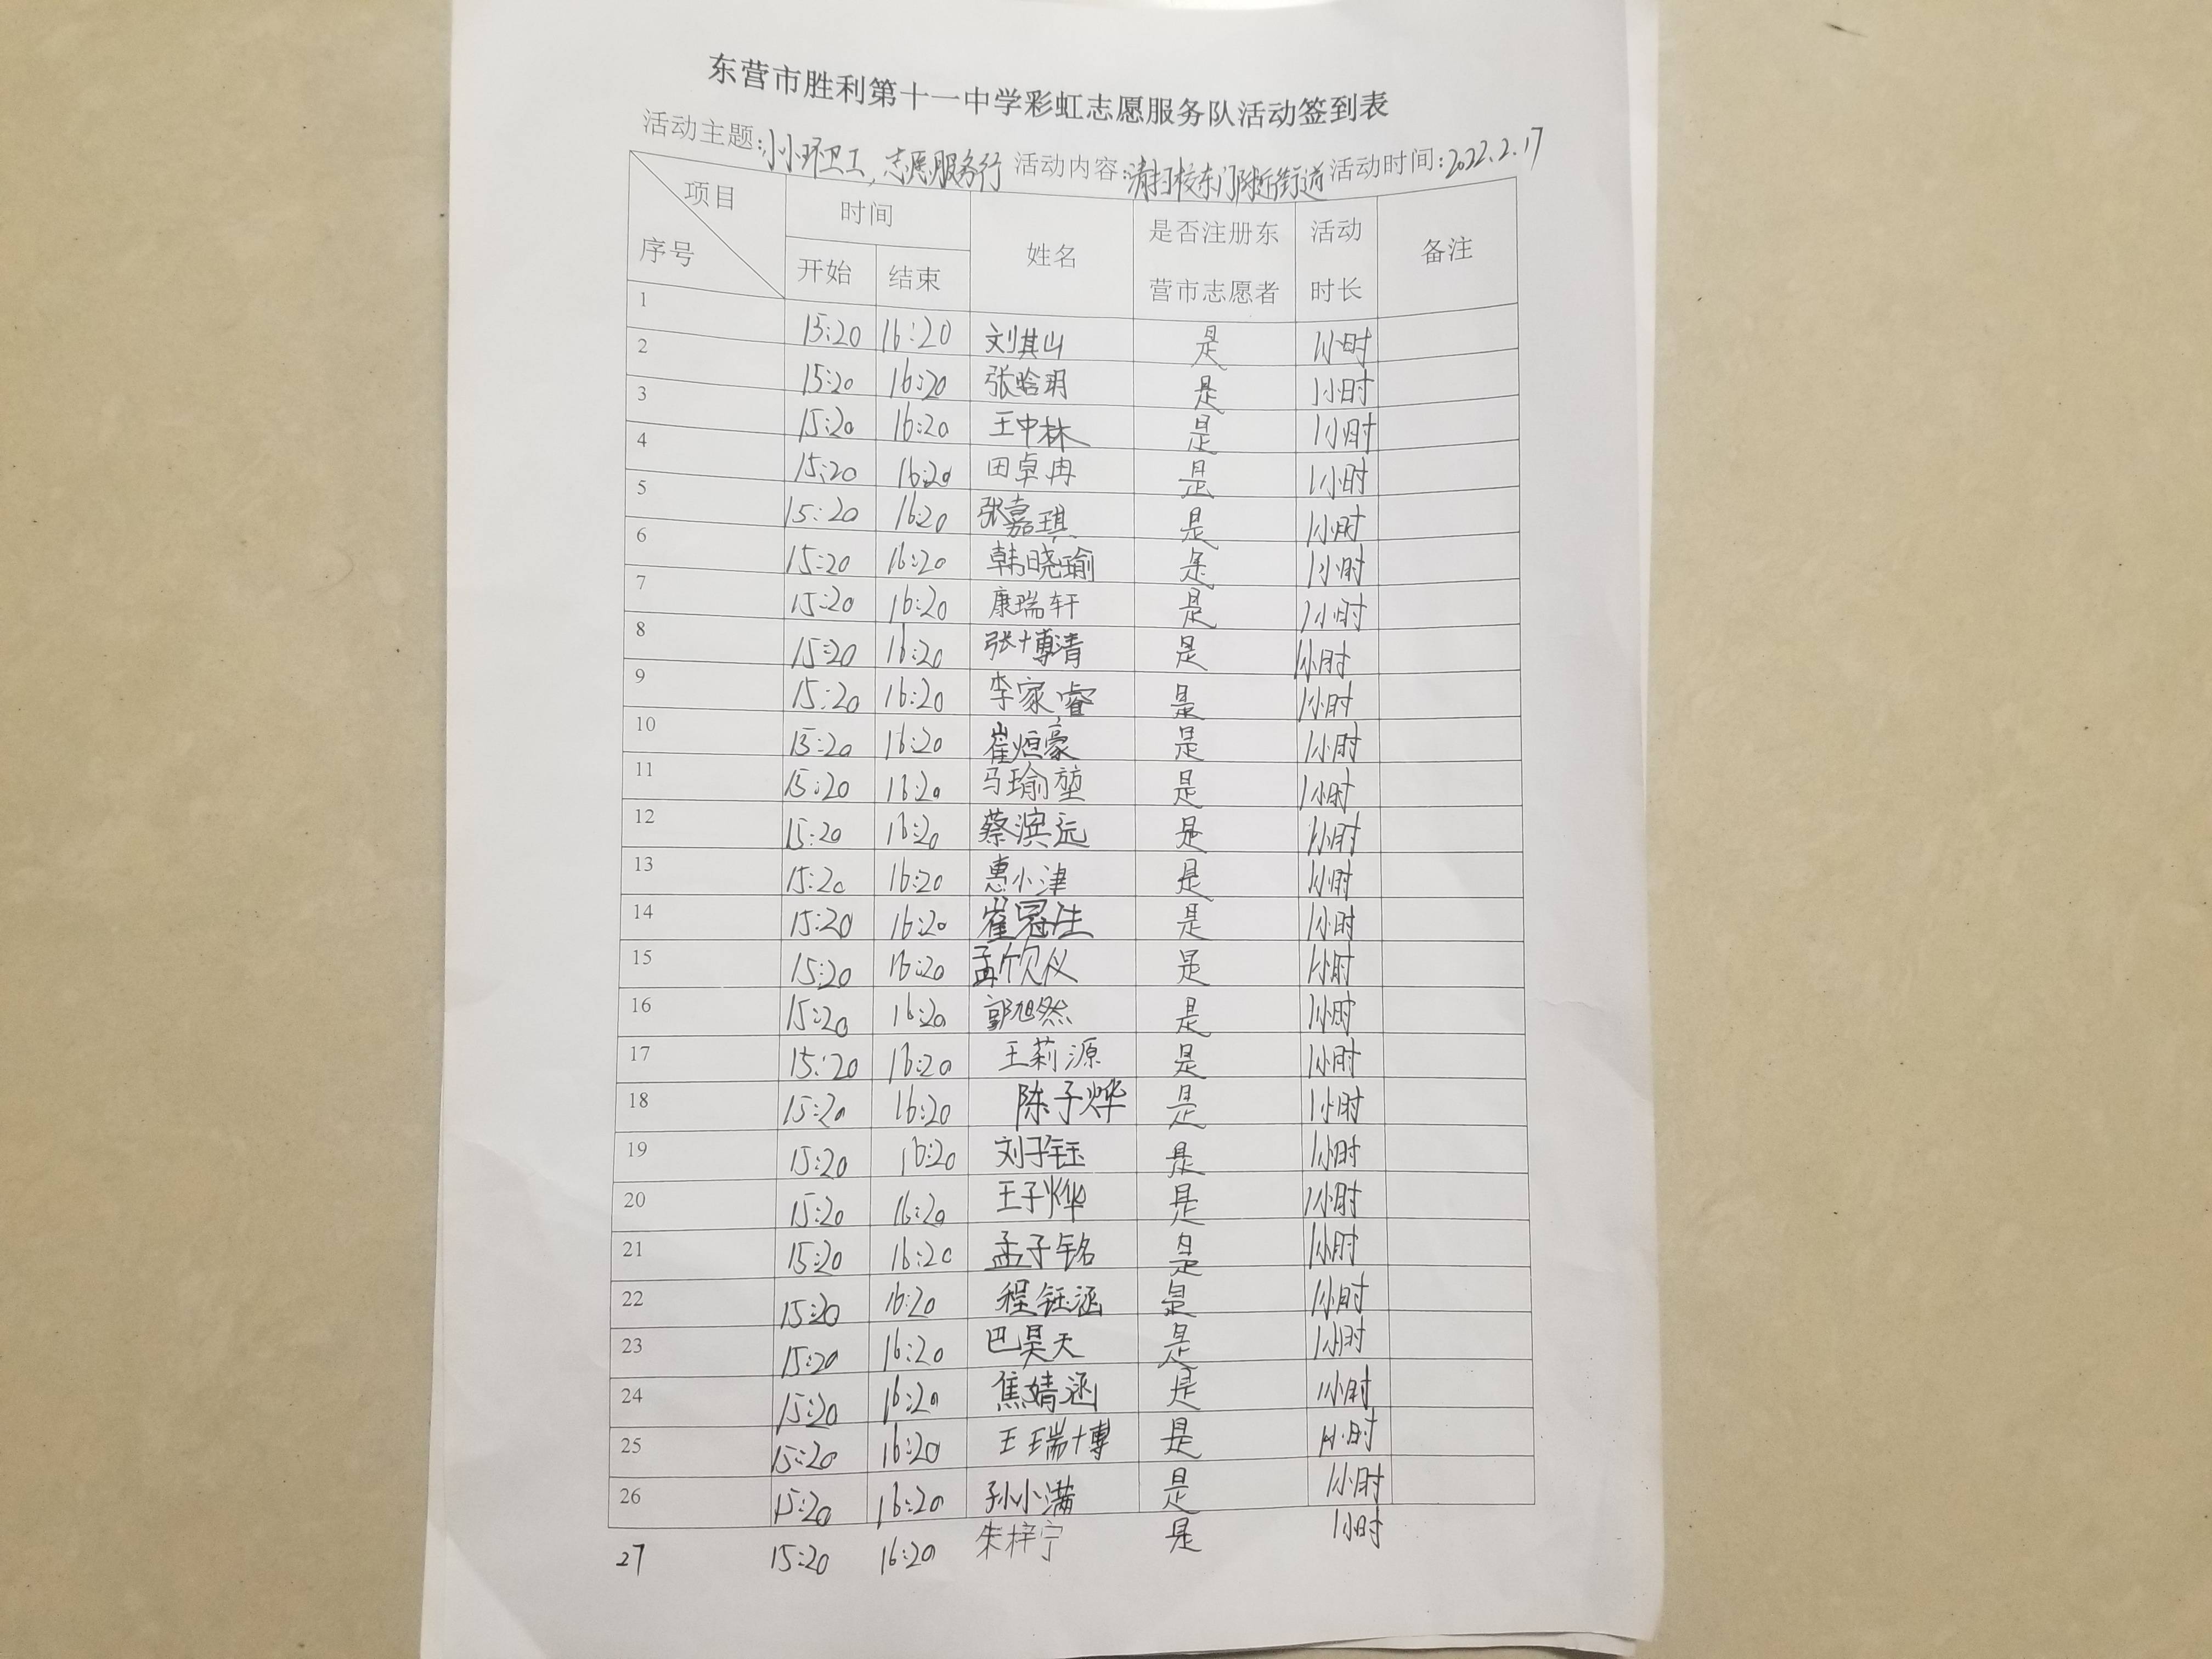 东营市胜利第十一中学彩虹志愿服务队活动签到表
活动主题:小小环卫工,志愿服务行 活动内容:清扫校东门附近街道 活动时间:2022.2.17
项目 序号 时间 开始 结束 姓名 是否注册东营市志愿者 活动时长 备注
1 15:20 16:20 刘其山 是 1小时
2 15:20 16:20 张晗玥 是 1小时
3 15:20 16:20 王中林 是 1小时
4 15:20 16:20 田卓冉 是 1小时
5 15:20 16:20 张嘉琪 是 1小时
6 15:20 16:20 韩晓瑜 是 1小时
7 15:20 16:20 康瑞轩 是 1小时
8 15:20 16:20 张博清 是 1小时
9 15:20 16:20 李家睿 是 1小时
10 15:20 16:20 崔烜豪 是 1小时
11 15:20 16:20 马瑜堃 是 1小时
12 15:20 16:20 蔡滨远 是 1小时
13 15:20 16:20 惠小津 是 1小时
14 15:20 16:20 崔冠生 是 1小时
15 15:20 16:20 孟欣仪 是 1小时
16 15:20 16:20 郭旭然 是 1小时
17 15:20 16:20 王莉源 是 1小时
18 15:20 16:20 陈子烨 是 1小时
19 15:20 16:20 刘子钰 是 1小时
20 15:20 16:20 王子烨 是 1小时
21 15:20 16:20 孟子铭 是 1小时
22 15:20 16:20 程钰涵 是 1小时
23 15:20 16:20 巴昊天 是 1小时
24 15:20 16:20 焦婧涵 是 1小时
25 15:20 16:20 王瑞博 是 1小时
26 15:20 16:20 孙小满 是 1小时
27 15:20 16:20 朱梓宁 是 1小时